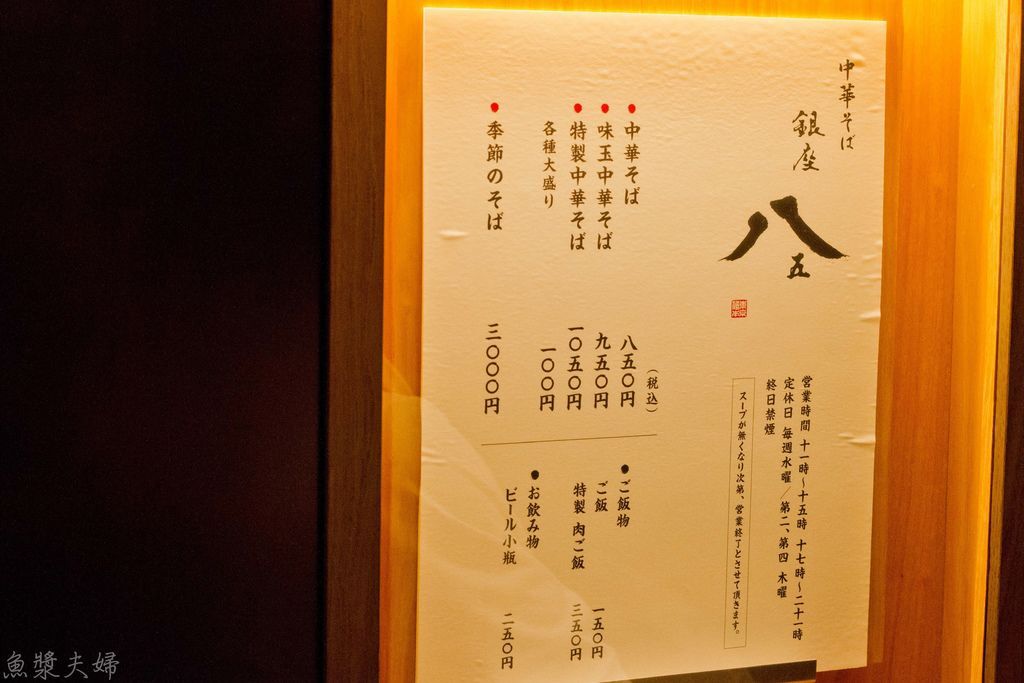 中華そば
銀座
八五
営業時間 十一時～十五時 十七時～二十一時
定休日 毎週水曜／第二、第四 木曜
終日禁煙
スープが無くなり次第、営業終了とさせて頂きます。
（税込）
中華そば 八五〇円
味玉中華そば 九五〇円
特製中華そば 一〇五〇円
各種大盛り 一〇〇円
季節のそば 三〇〇〇円
ご飯物
ご飯 一五〇円
特製 肉ご飯 三五〇円
お飲み物
ビール小瓶 二五〇円
魚漿夫婦